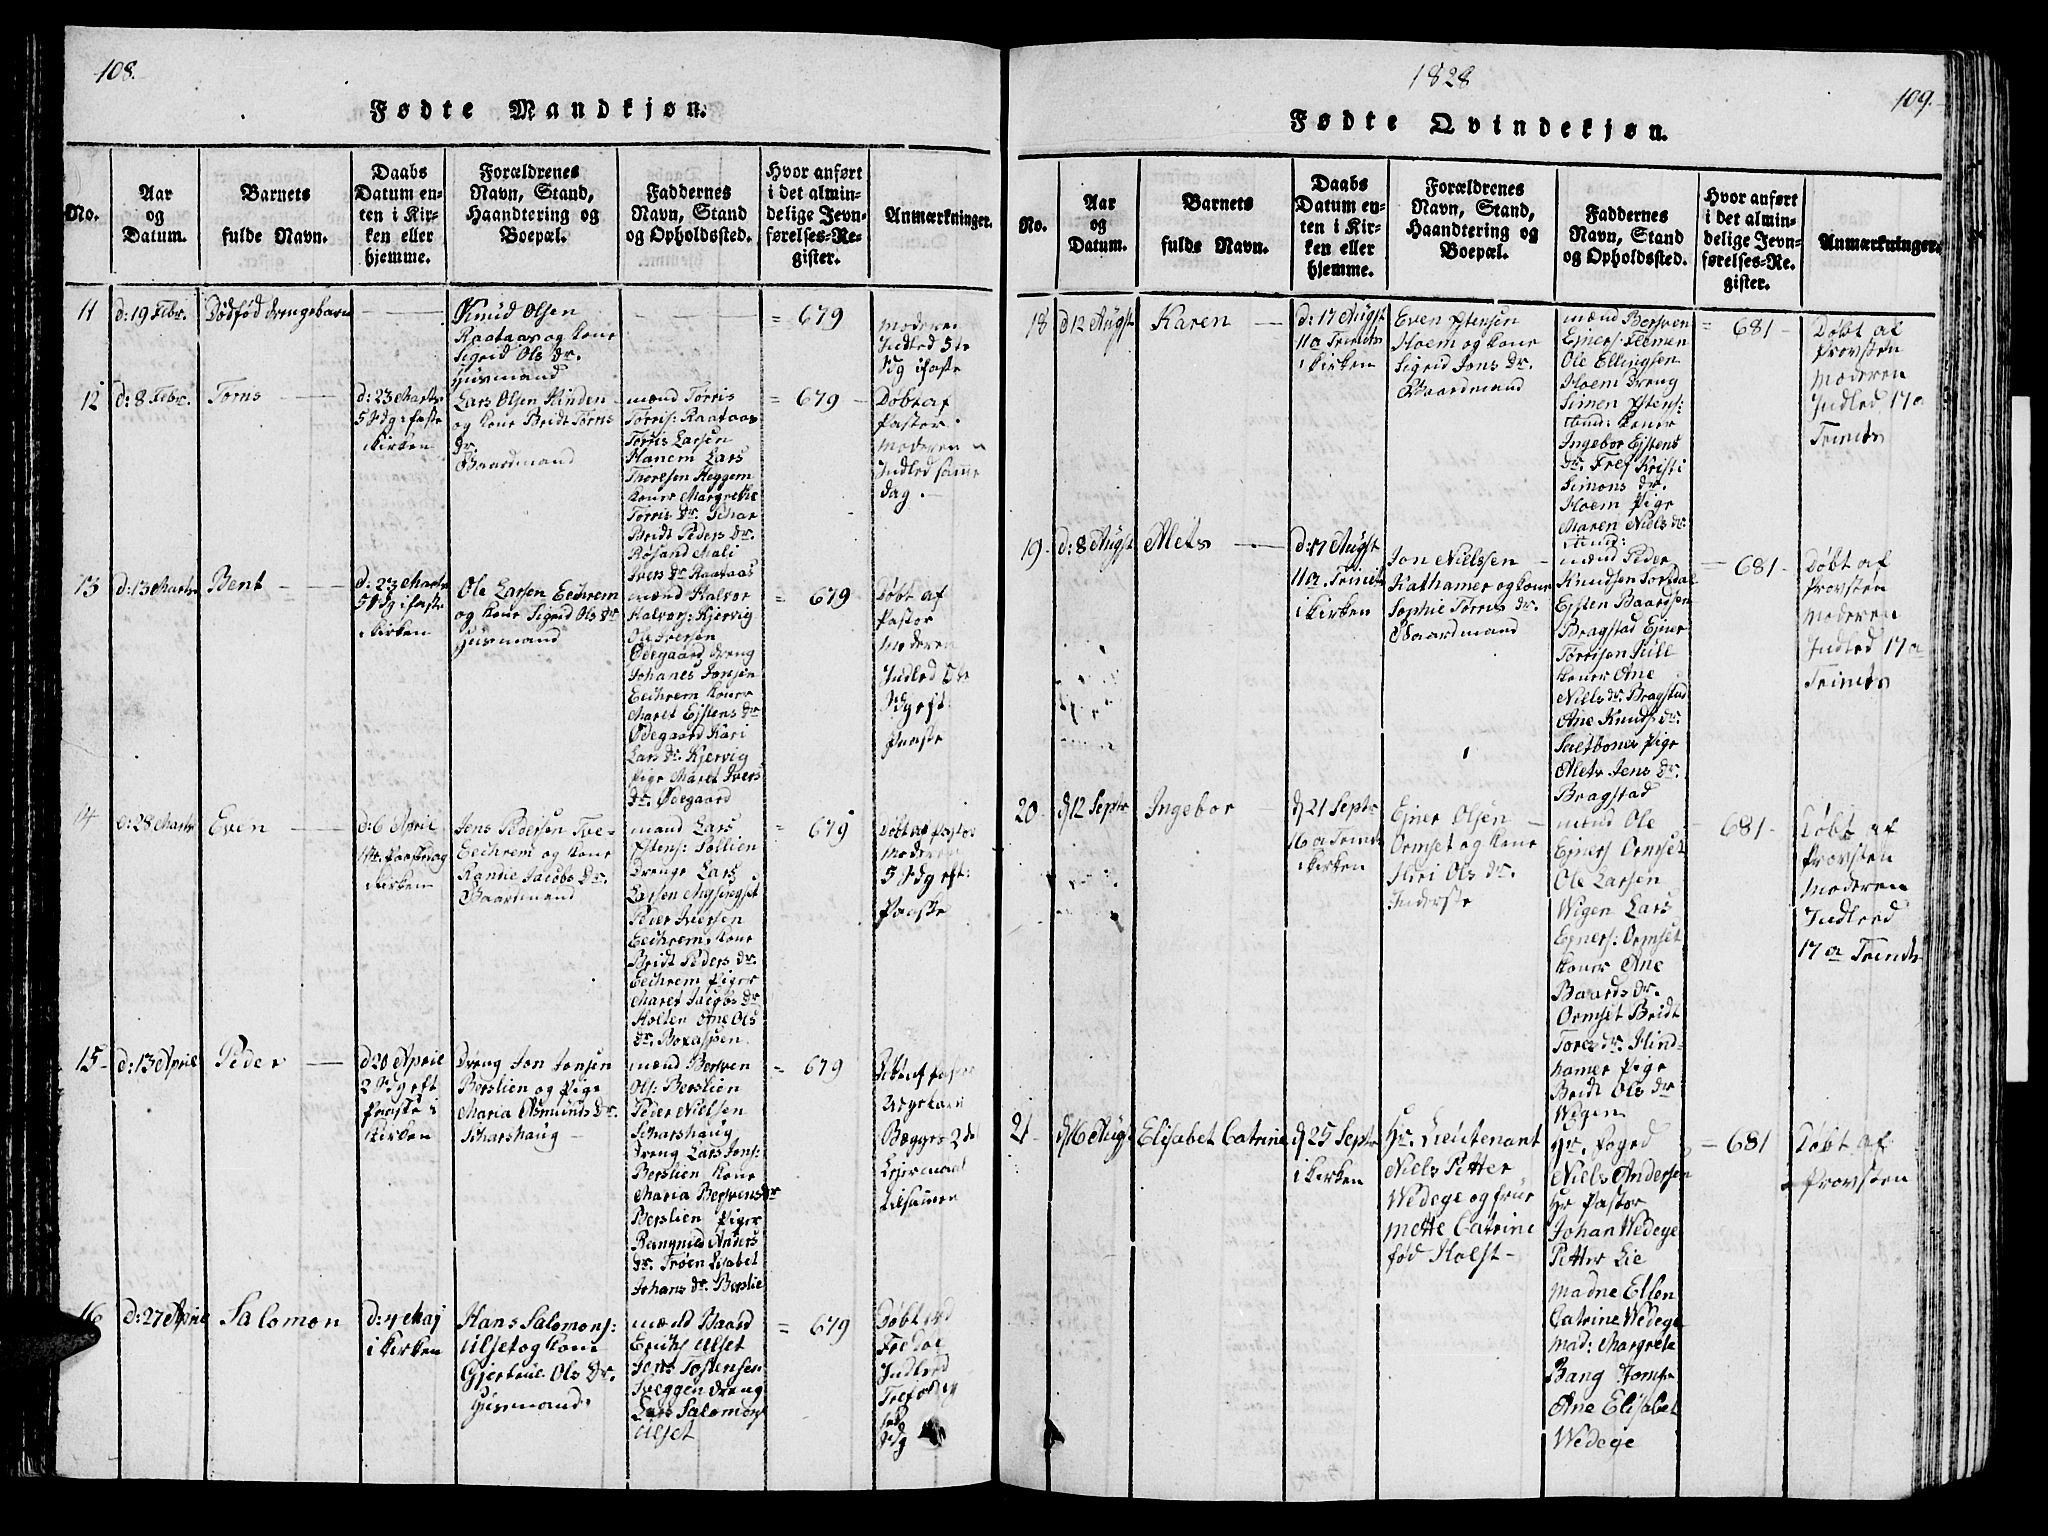 108.
Fødte Mandkjøn.
No.
Aar
og
Datum.
Barnets
fulde Navn.
Daabs
Datum en-
ten i Kir-
ken eller
hjemme.
Forældrenes
Navn, Stand,
Haandtering og
Boepæl.
Faddernes
Navn, Stand
og Opholdssted.
Hvor anført
i det almin-
delige Jevn-
førelses-Re-
gister.
Anmærkninger.
11
d: 19 Febr.
Dödfød drengebarn
Knud Olsen
Raataas og kone
Sigrid Ols Dr.
Huusmand
= 679
Moderen
Indled 5te
Sdg i faste
12
d: 8 Febr.
Torris
d: 23 Marts
5 Sdg i faste
i kirken
Lars Olsen
og kone Bridt Torris
Dr.
Baardmand
mænd Torris
Torris: Raataas
Torris Larsen
Hanem Lars
Thorlsen Heggem
koner Margrethe
Torris Dr.
Bridt Peders Dr.
Røsand Mali
Ivers Dr. Raataas
= 679
Döbt af
Pastor.
Moderen
Indled samme
dag.
13
d: 13 Marts
Bent
d: 23 Marts
5 Sdg i faste
i kirken
Ole Larsen Eechrem
og kone Sigrid Ols Dr
Huusmand
mænd Halvor
Halvors: Kjervig
Ole Iversen
Ødegaard dreng
Johanes Jonsen
Eechrem koner
Maret Ejstens Dr
Ødegaard Kari
Lars Dr. Kjervig
Pige Maret Ivers
Dr. Ødegaard
= 679
Døbt af
Pastor
Moderen
Indled 5te
Sdg eft.
Paaske
14
d: 28 Marts
Even
d: 6 April
1ste Paaskedag
i kirken
Jens Pedersen
Eechrem og kone
Randie Jacobs Dr.
Baardmand
mænd Lars
Estens: Sollien
Drenge Lars
Larsen
Peder Iversen
Eechrem, Kone
Bridt Peders Dr.
Eechrem Piger
Maret Jacobs Dr
Holten Ane Ols
Dr. Boraspen
= 679
Døbt af Pastor
Moderen
5 Sdg eft:
Paaske
15
d: 13 April
Peder
d 20 April
2 Sdg eft
Paaske i
kirken
Dreng Jon Jonsen
Berslien og Pige
Maria Asmunds Dr.
Skarshaug
mænd Bersven
Ols: Berslien
Peder Nielsen
Skarshaug
Dreng Lars Jons:
Berslien Kone
Maria Bersvens Dr
Berslien Piger
Rangnild Anders
Dr. Trøen Lisabet
Johans Dr. Berslie
= 679
Døbt af Pastor
Begges 2de
Leiermaal
tilsammen
16
d: 27 April
Salomon
d: 4 Maj
i kirken
Hans Salomons:
Ulset og kone
Gjertrue Ols Dr.
Huusmand
mænd Baard
Erichs Ulset
Jens Tostensen
Sveggen dreng
Lars Salomons
Ulset
= 679
Indled
Sdg
1828
109.
Fødte Qvindekjøn.
No.
Aar
og
Datum.
Barnets
fulde Navn.
Daabs
Datum en-
ten i Kir-
ken eller
hjemme.
Forældrenes
Navn, Stand,
Haandtering og
Boepæl.
Faddernes
Navn, Stand
og Opholdssted.
Hvor anført
i det almin-
delige Jevn-
førelses-Re-
gister.
Anmærkninger.
18
d 12 Augst
Karen
d: 17 Augst
11 a Trinits
i kirken
Even Estensen
Hoem og kone
Sigrid Jons Dr.
Baardmand
mænd Bersven
Ejners:
Ole Ellingsen
Hoem Dreng
Simen Estens:
koner
Ingebor Ejstens
Dr. Kristi
Simons Dr.
Hoem Pige
Maren Niels Dr
= 681
Døbt af
Provsten
Moderen
Indled 17 a
Trinits
19
d: 8 Augst
Mets
d: 17 Augst
11 a Trinits
i kirken
Jon Nielssen
Kathamer og kone
Sophie Torris Dr.
Baardmand
mænd Peder
Knudsen Torsdal
Ejsten Baardsen
Bragstad Ejner
Torrisen
koner Ane
Niels Dr. Bragstad
Ane Knuds Dr.
Saltbones Pige
Mets Jens Dr.
Bragstad
= 681
Døbt af
Provsten
Moderen
Indled 17 a
Trinits
20
d 12 Septr
Ingebor
d 21 Septr
16 a Trinits
i kirken
Ejner Olsen
Ormset og kone
Ols Dr.
Inderste
mænd Ole
Ejners Ormset
Ole Larsen
Wigen Lars
Ejners: Ormset
koner Ane
Baards Dr.
Ormset Bridt
Tores Dr. Hind-
hamer Pige
Bridt Ols Dr
Wigen
681
Døbt af
Provsten
Moderen
Indled
17 a Trinits
21
d 16 Aug
Elisabet Catrine
d 25 Septr
i kirken
Hr. Lieutenant
Niels Petter
Wedege og frue
Mette Catrine
fød Holst
Hr. Foged
Niels Andersen
Hr Pastor
Johan Wedege
Petter Lie
Madne Ellen
Catrine Wedege
Mad: Margrete
Bang Jomfr
Ane Elisabet
Wedege
= 681
Døbt af
Provsten